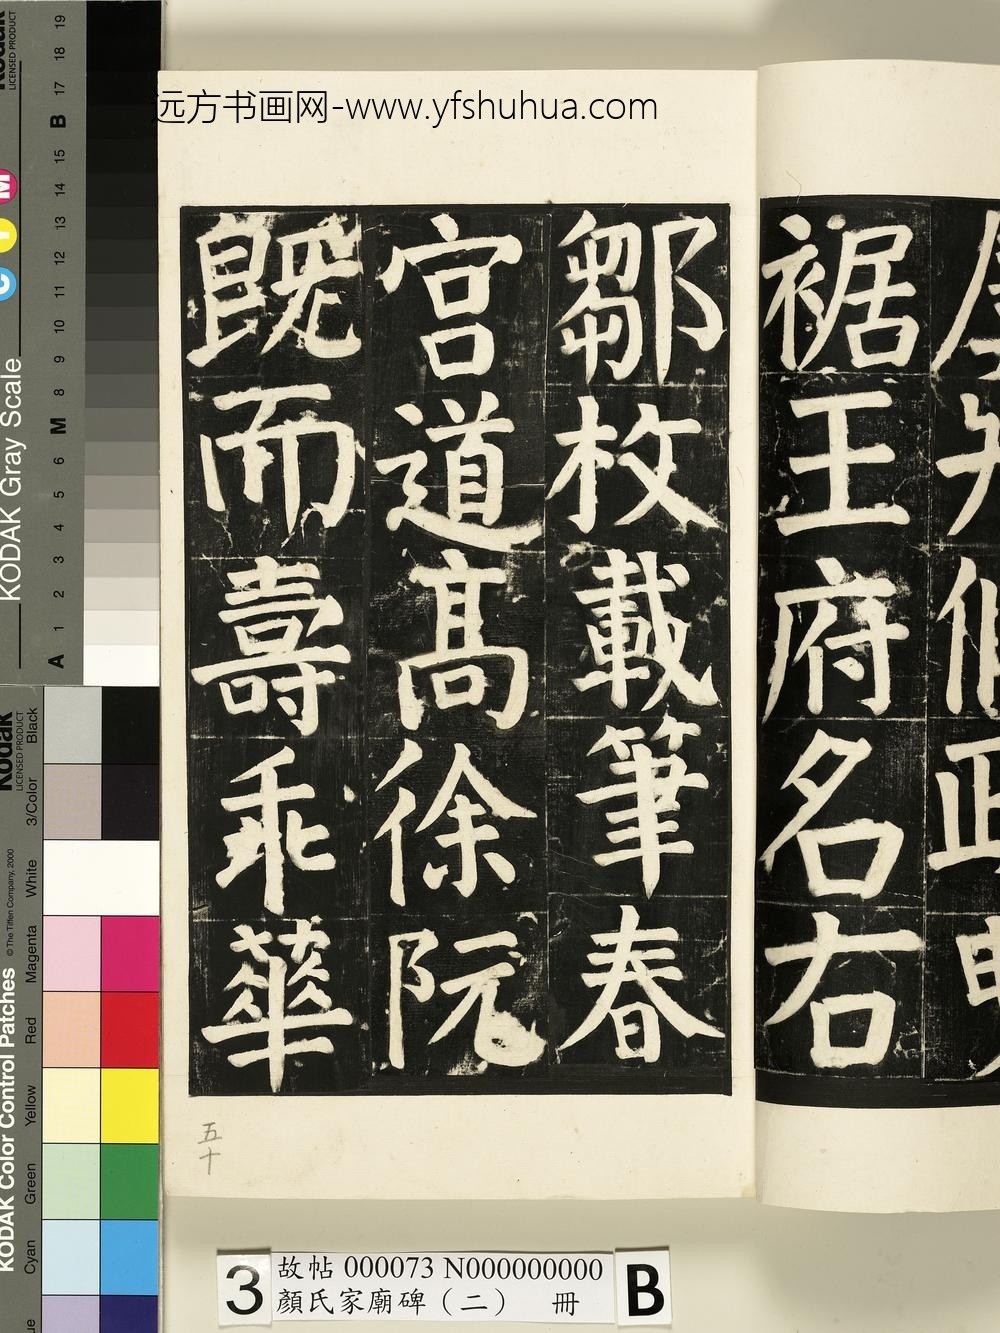 远方书画网-www.yfshuhua.com
裾王府名右
鄒枚載筆春
宫道髙徐阮
既而壽乖華
五十
3
故帖 000073 N000000000
顏氏家廟碑（二） 冊
B
KODAK Gray Scale
C Y M
Kodak
LICENSED PRODUCT
A 1 2 3 4 5 6 M 8 9 10 11 12 13 14 15 B 17 18 19
KODAK Color Control Patches
© The Tiffen Company, 2000
Kodak
LICENSED PRODUCT
Cyan Green Yellow Red Magenta White 3/Color Black